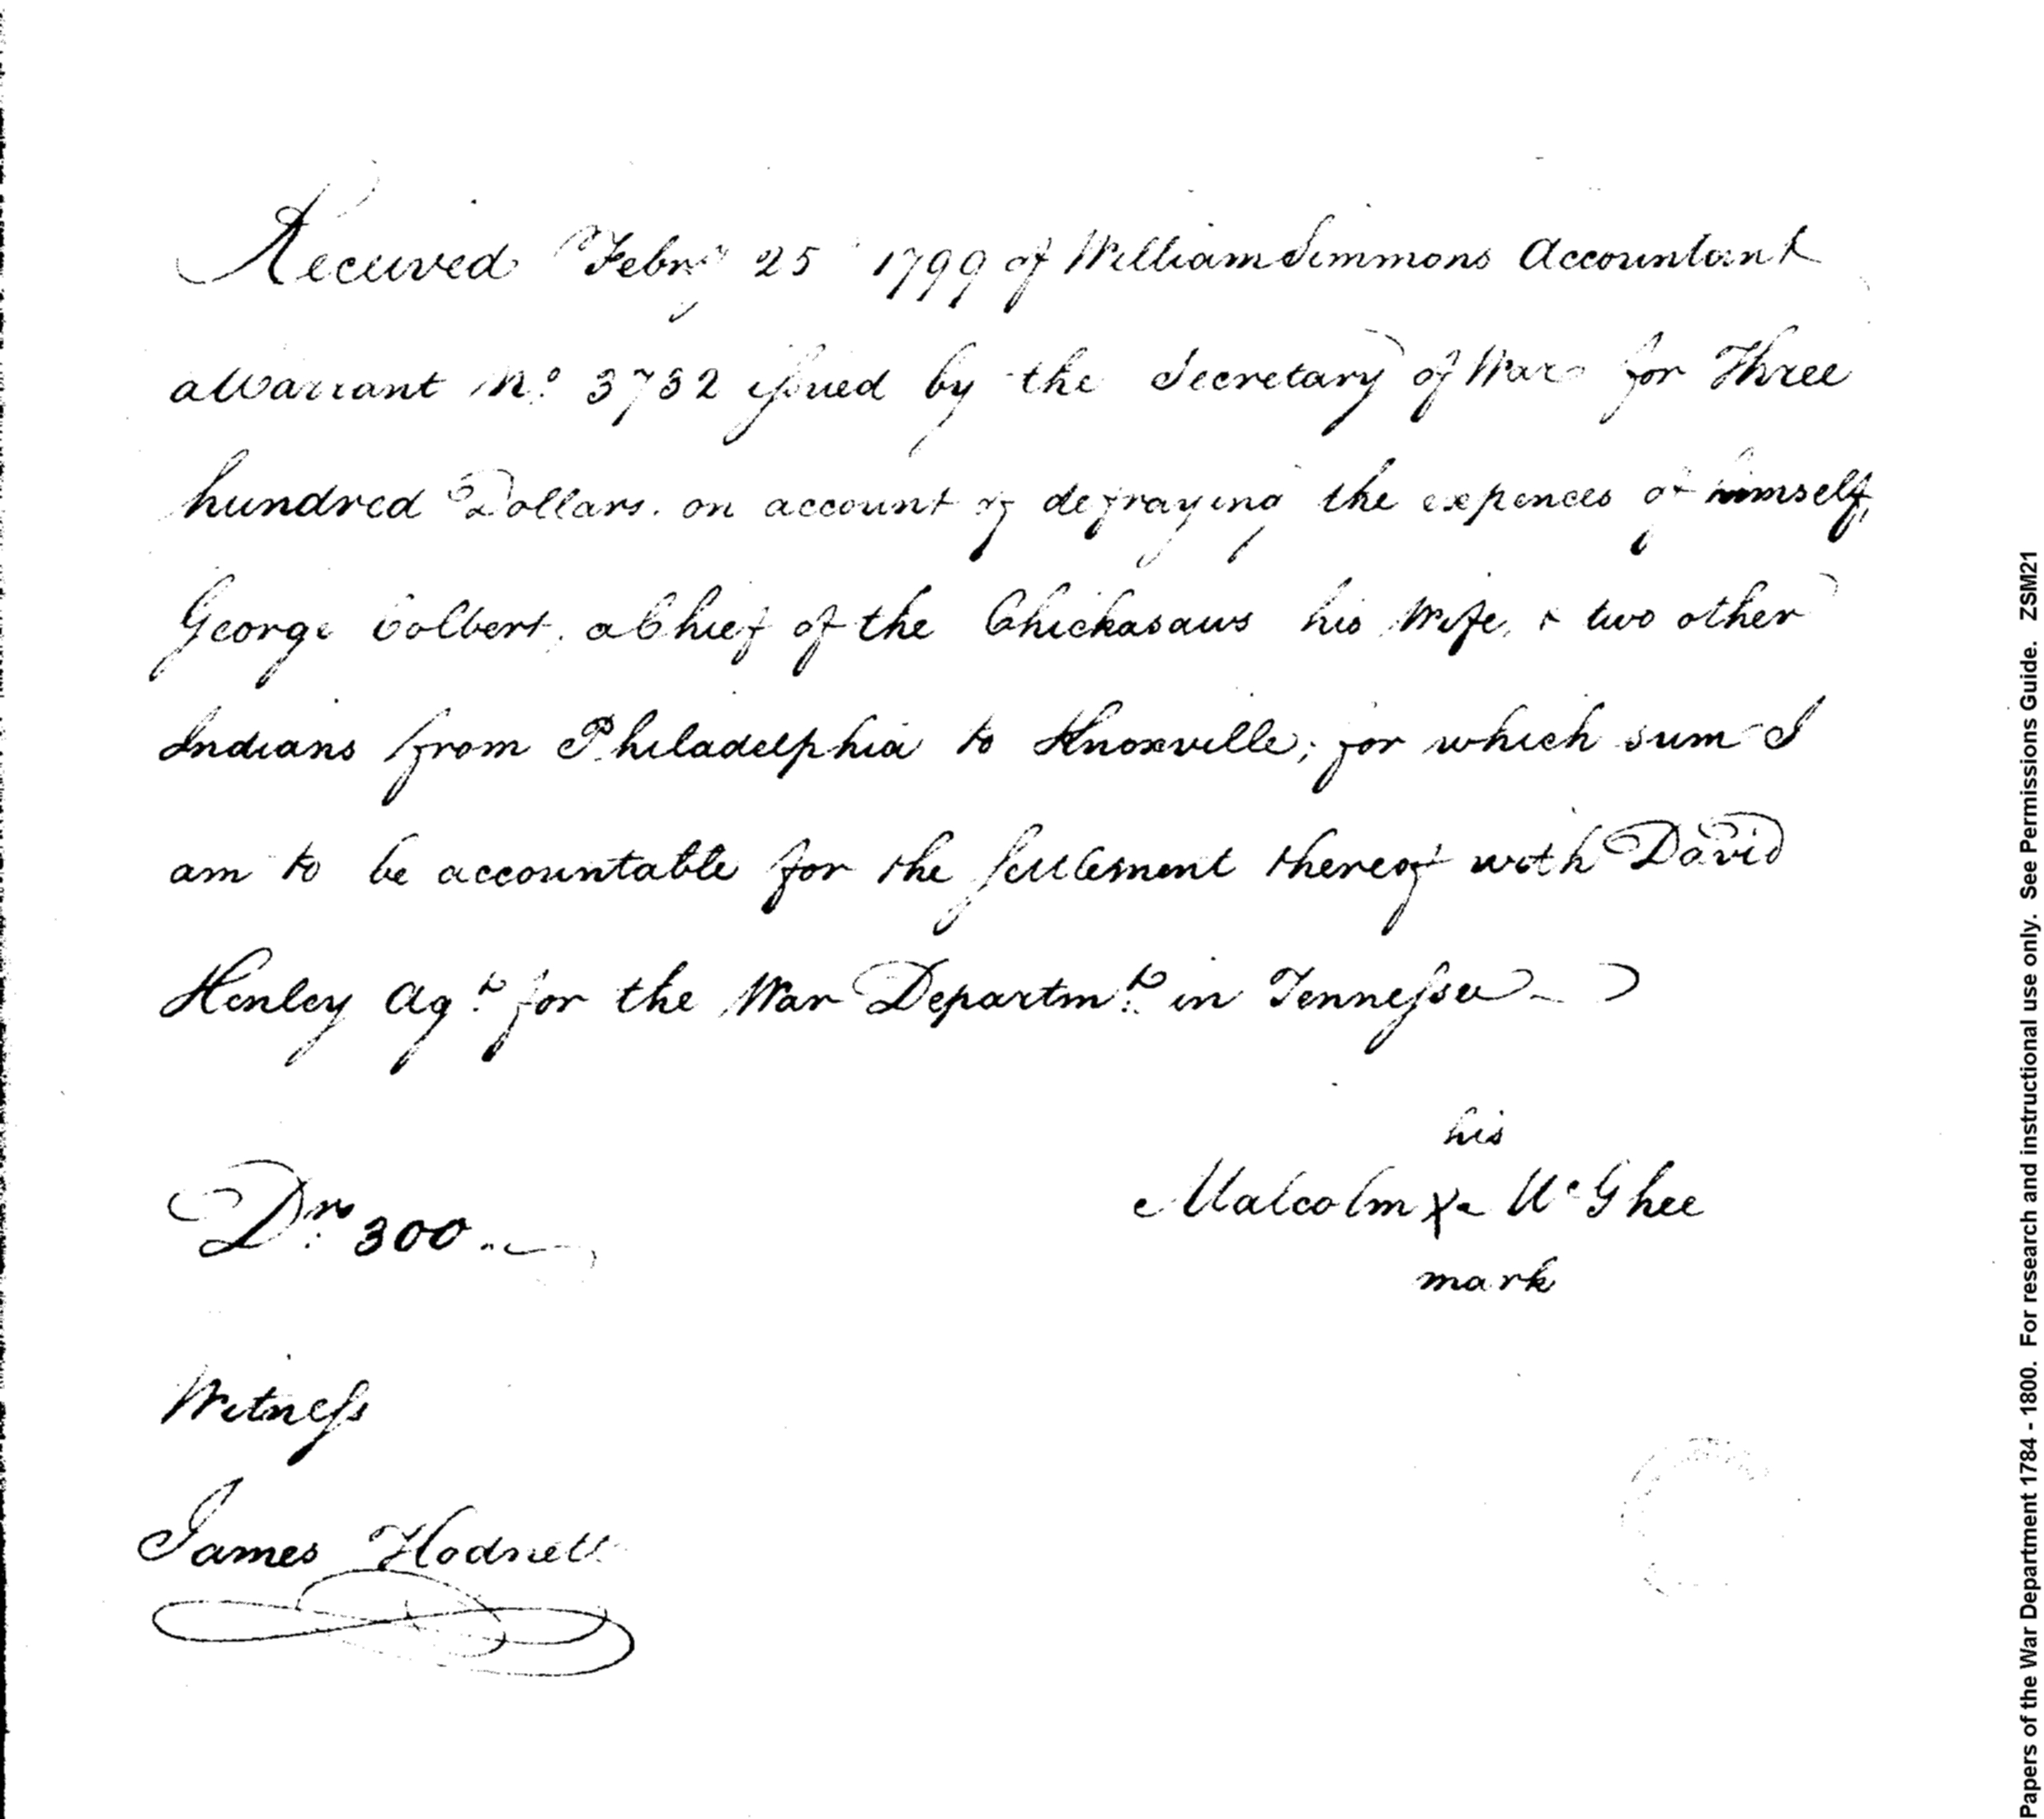 Received Febry 25 1799 of William Simmons Accountant
a Warrant No. 3732 issued by the Secretary of War for Three
hundred Dollars. on account of defraying the expences of himself,
George Colbert, a Chief of the Chickasaws his Wife, & two other
Indians from Philadelphia to Knoxville; for which sum I
am to be accountable for the settlement thereof with David
Henley Agt. for the War Departmt. in Tennessee
his
Malcolm X McGhee
mark
Drs. 300..
Witness
James Hodnett
Papers of the War Department 1784 - 1800. For research and instructional use only. See Permissions Guide. ZSM21